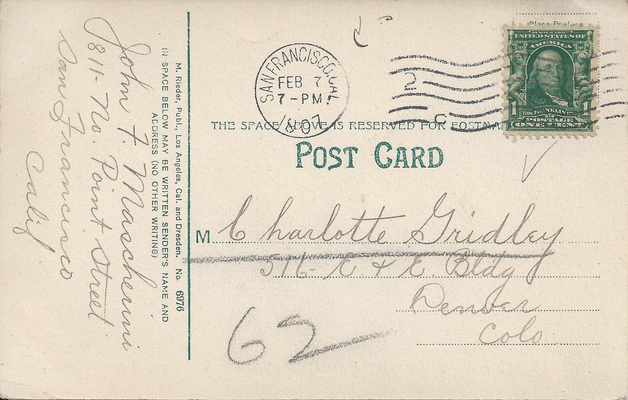 Place Postage
UNITED STATES OF
AMERICA
1
FRANKLIN
POSTAGE
ONE CENT
SAN FRANCISCO, CAL.
FEB 7
7-PM
1907
2
C
THE SPACE ABOVE IS RESERVED FOR POSTMA
POST CARD
M Charlotte Gridley
516- E & E Bldg
Denver
Colo
62
M. Rieder, Publ., Los Angeles, Cal. and Dresden. No. 6976
IN SPACE BELOW MAY BE WRITTEN SENDER'S NAME AND
ADDRESS (NO OTHER WRITING)
John F. Mascherini
1811- No. Point Street
San Francisco
Calif